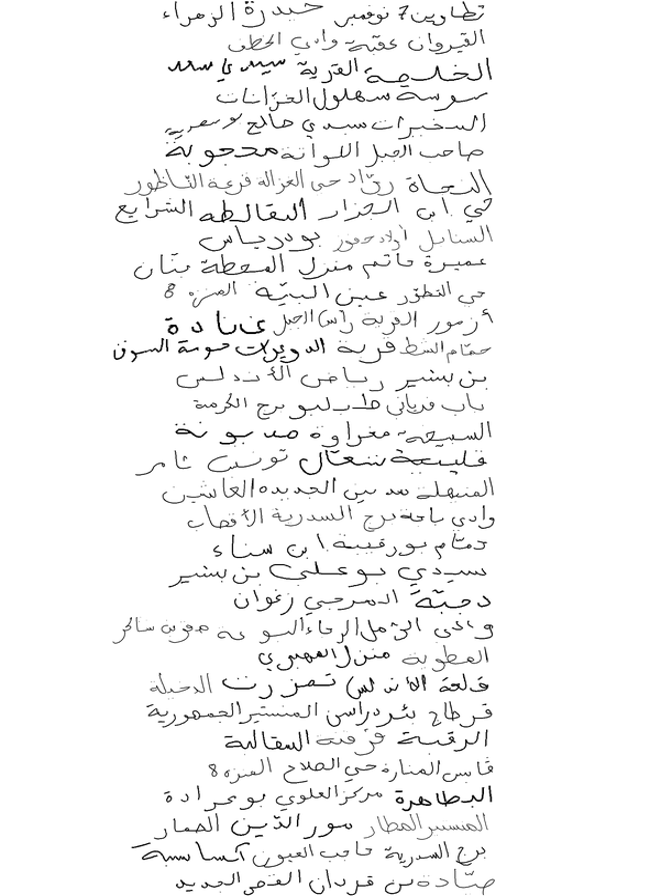 تطاوين 7 نوفمبر حيدرة الزهراء
القيروان عقبة وادي الخطف
الخليجة القرية سيدي سعد
سوسة سهلول الخزانات
السخيرات سيدي صالح بوسعيد
صاحب الجبل اللواتة محجوبة
النجاة روّاد حي الغزالة قرعة النّاظور
حي ابن الجزار البقالطة الشرايع
السنابل أولاد حفوز بودرياس
عميرة حاتم منزل المحطة بتان
حي التطوّر عين البيّة المنزه 8
أزمور القرية رأس الجبل غنّادة
حمّام الشط قرية الدويرات حومة السوق
بن بشير رياض الأندلس
باب فرياني طبلبو برج الكرمة
السبيخة مغراوة صديونة
قليبية شعّال تونس ثامر
المنيهلة سد نبن الجديدة الغاشين
وادي باجة برج السدرية الأقصاب
حمّام بورقيبة ابن سناء
سيدي بوعلي بن بشير
دجبّة الدمرجي زغوان
وادي الرمل الرخاء
العطوية منزل المهيري
قلعة الأندلس تمزرت الدخيلة
قرطاج بئر دراسن المنستير الجمهورية
الرقبة قرقنة السقالبة
قابس المنارة حي الصلاح المنزه 8
البطاهرة مركز العلوي بوعرادة
المنستير المطار نور الدّين الصمار
برج السدرية حاجب العيون
صيّادة بن قردان القصر الجديد